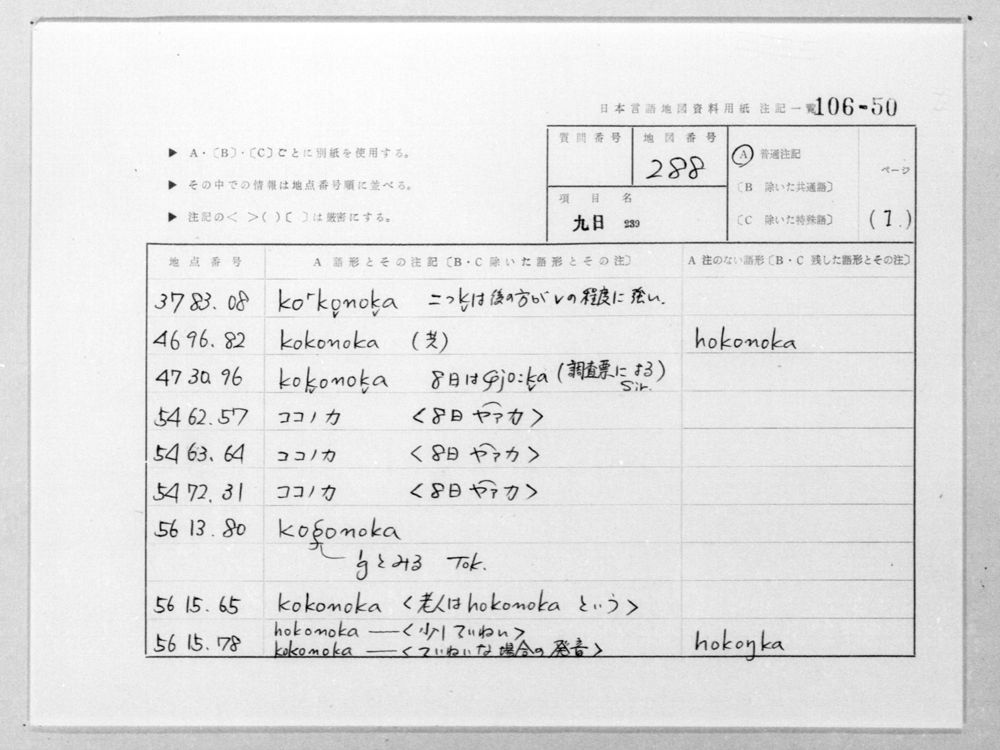 日本言語地図資料用紙 注記一覧 106-50
▶ A・〔B〕・〔C〕ごとに別紙を使用する。
▶ その中での情報は地点番号順に並べる。
▶ 注記の< >( )〔 〕は厳密にする。
質問番号
地図番号
288
項目名
九日 239
Ⓐ 普通注記
〔B 除いた共通語〕
〔C 除いた特殊語〕
ページ
(1.)
地点番号 A 語形とその注記〔B・C 除いた語形とその注〕 A 注のない語形〔B・C 残した語形とその注〕
3783.08 ko⌜ko̬noka 二つk̬は後の方がvの程度に強い.
4696.82 kokonoka (老) hokonoka
4730.96 kok̬onok̬a 8日はφjoːk̬a (調査票による)
Sir.
5462.57 ココノカ <8日 ヤアカ>
5463.64 ココノカ <8日 ヤアカ>
5472.31 ココノカ <8日 ヤアカ>
5613.80 kogonoka
gとみる Tok.
5615.65 kokonoka <老人はhokonoka という>
5615.78 hokonoka ──<少していねい> hokoŋka
kokonoka ──<ていねいな場合の発音>